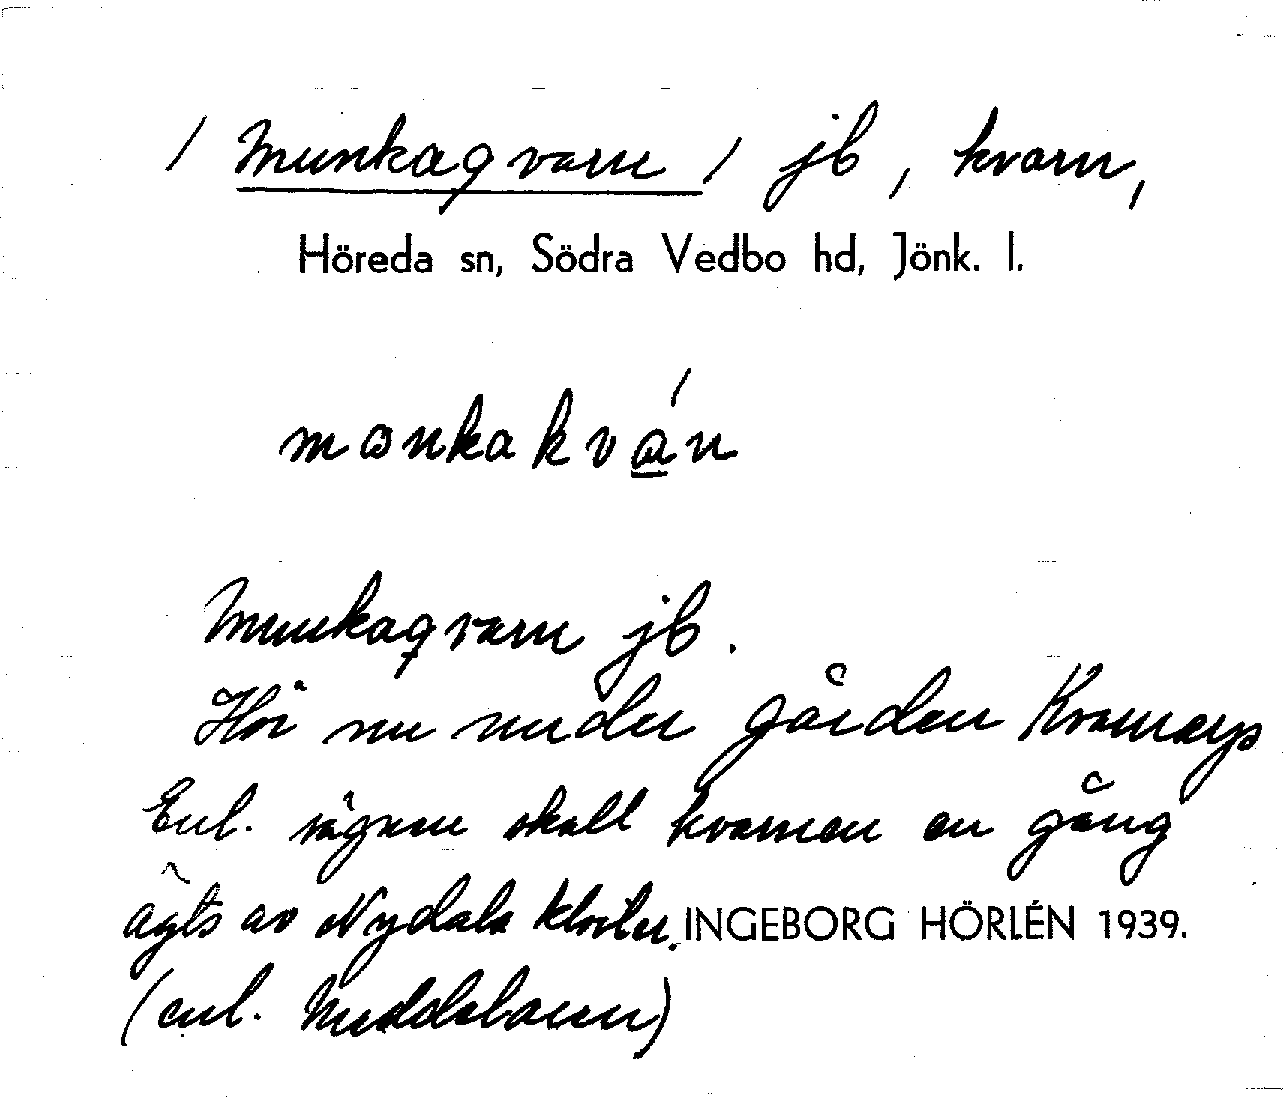 / Munkaqvarn / jb, kvarn,
Höreda sn, Södra Vedbo hd, Jönk. l.
mɷnkakvá̲n
Munkaqvarn jb.
Hör nu under gården Kvarnarp
Enl. sägnen skall kvarnen en gång
ägts av Nydala kloster. INGEBORG HÖRLÉN 1939.
(enl. Meddelaren)